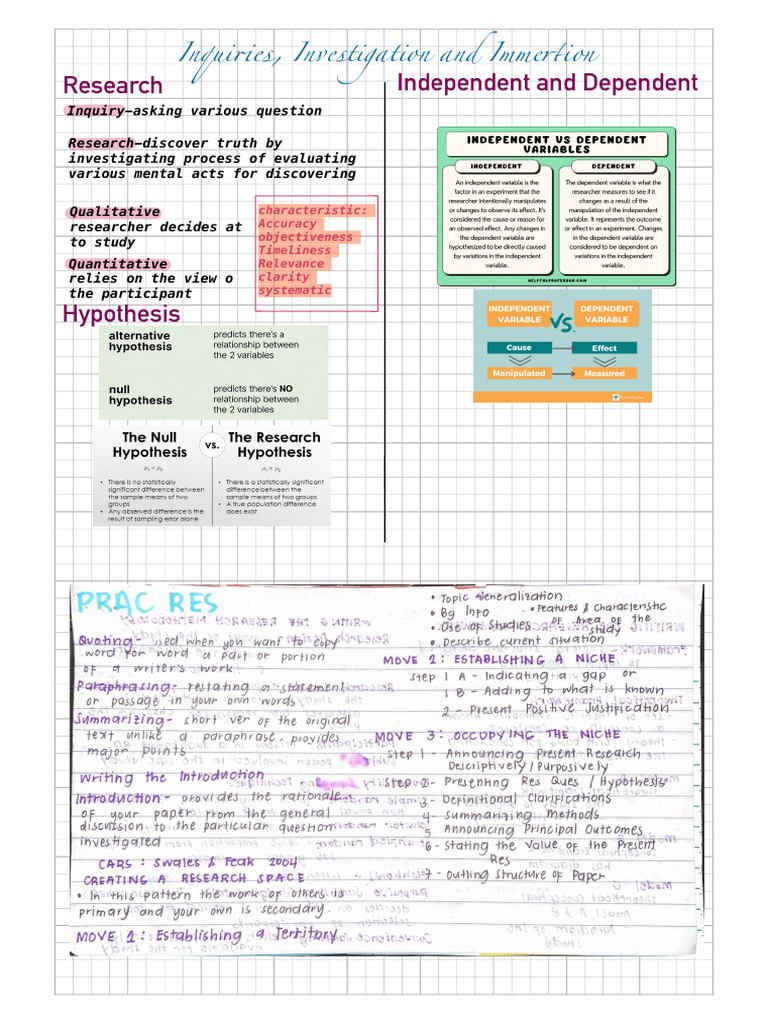 Inquiries, Investigation and Immertion
Research
Inquiry-asking various question
Research-discover truth by
investigating process of evaluating
various mental acts for discovering
Qualitative
researcher decides at
to study
Quantitative
relies on the view o
the participant
characteristic:
Accuracy
objectiveness
Timeliness
Relevance
clarity
systematic
Hypothesis
alternative
hypothesis
predicts there's a
relationship between
the 2 variables
null
hypothesis
predicts there's NO
relationship between
the 2 variables
The Null
Hypothesis
μ₁ = μ₂
• There is no statistically
significant difference between
the sample means of two
groups
• Any observed difference is the
result of sampling error alone
vs.
The Research
Hypothesis
• There is a statistically significant
difference between the
sample means of two groups
• A true population difference
does exist
Independent and Dependent
INDEPENDENT VS DEPENDENT
VARIABLES
INDEPENDENT
An independent variable is the
factor in an experiment that the
researcher intentionally manipulates
or changes to observe its effect. It's
considered the cause or reason for
an observed effect. Any changes in
the dependent variable are
hypothesized to be directly caused
by variations in the independent
variable.
DEPENDENT
The dependent variable is what the
researcher measures to see if it
changes as a result of the
manipulation of the independent
variable. It represents the outcome
or effect in an experiment. Changes
in the dependent variable are
considered to be dependent on
variations in the independent
variable.
HELPFULPROFESSOR.COM
INDEPENDENT
VARIABLE
VS.
DEPENDENT
VARIABLE
Cause
Effect
Manipulated
Measured
PRAC RES
Quoting - used when you want to copy
word for word a part or portion
of a writer's work
Paraphrasing - restating a statement
or passage in your own words
Summarizing - short ver of the original
text unlike a paraphrase, provides
major points
Writing the Introduction
Introduction - provides the rationale
of your paper from the general
discussion to the particular question
investigated
CARS : Swales & Feak 2004
CREATING A RESEARCH SPACE
• In this pattern the work of others is
primary and your own is secondary.
MOVE 1: Establishing a Territory
• Topic Generalization
• Bg Info
• Features & Characteristic
of Area of the
study
• Use of Studies
• Describe current situation
MOVE 2: ESTABLISHING A NICHE
step 1 A - Indicating a gap or
1 B - Adding to what is known
2 - Present Positive Justification
MOVE 3: OCCUPYING THE NICHE
step 1 - Announcing Present Research
Descriptively / Purposively
step 2 - Presenting Res Ques / Hypothesis
3 - Definitional Clarifications
4 - Summarizing Methods
5 Announcing Principal Outcomes
6 - Stating the Value of the Present
Res
7 - Outling Structure of Paper